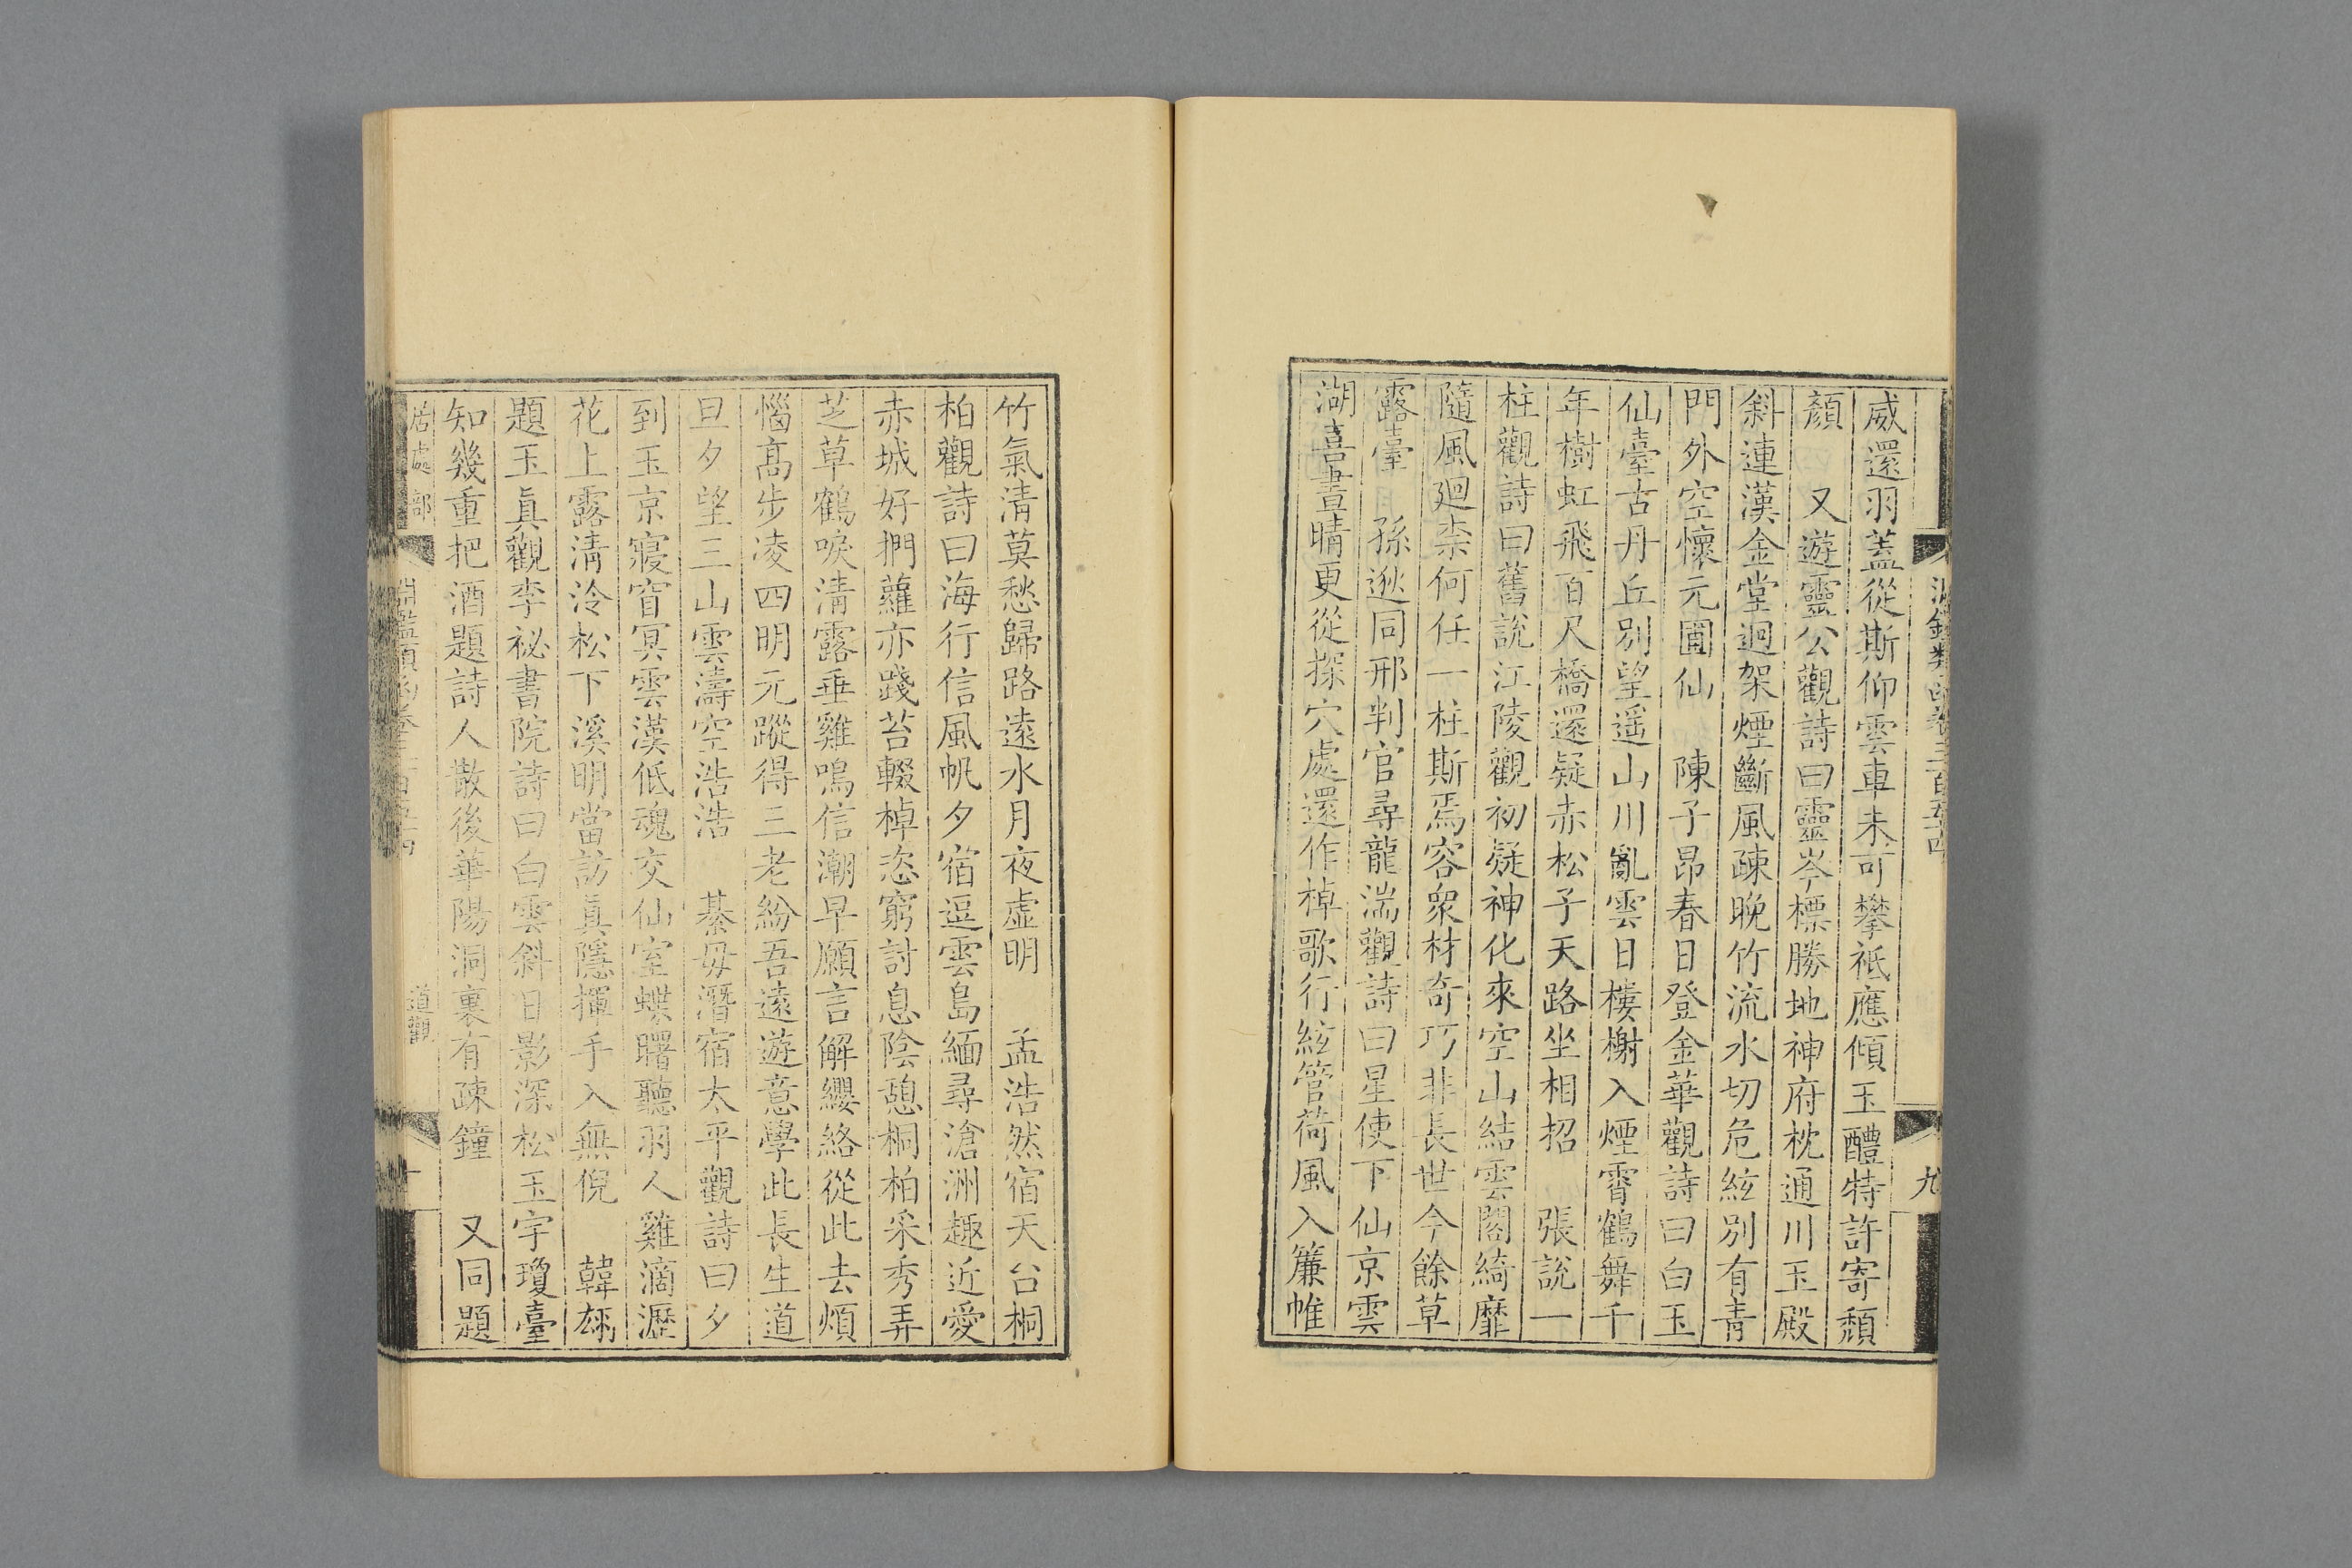 威還羽蓋從斯仰雲車未可攀祗應傾玉醴特許寄頹
顏 又遊靈公觀詩曰靈岑標勝地神府枕通川玉殿
斜連漢金堂迥架煙斷風疎晚竹流水切危絃別有青
門外空懷元圃仙 陳子昂春日登金華觀詩曰白玉
仙臺古丹丘別望遥山川亂雲日樓榭入煙霄鶴舞千
年樹虹飛百尺橋還疑赤松子天路坐相招 張說一
柱觀詩曰舊說江陵觀初疑神化來空山結雲閣綺靡
隨風廻柰何任一柱斯焉容衆材奇巧非長世今餘草
露臺 孫逖同邢判官尋龍湍觀詩曰星使下仙京雲
湖喜晝晴更從探穴處還作棹歌行絃管荷風入簾帷
竹氣清莫愁歸路遠水月夜虛明 孟浩然宿天台桐
柏觀詩曰海行信風帆夕宿逗雲島緬尋滄洲趣近愛
赤城好捫蘿亦踐苔輟棹恣窮討息陰憩桐柏采秀弄
芝草鶴唳清露垂雞鳴信潮早願言解纓絡從此去煩
惱高步凌四明元蹤得三老紛吾遠遊意學此長生道
旦夕望三山雲濤空浩浩 綦毋潛宿太平觀詩曰夕
到玉京寢窅冥雲漢低魂交仙室蝶曙聽羽人雞滴瀝
花上露清泠松下溪明當訪真隱揮手入無倪 韓翃
題玉真觀李祕書院詩曰白雲斜日影深松玉宇瓊臺
知幾重把酒題詩人散後華陽洞裏有疎鐘 又同題
居處部 道觀